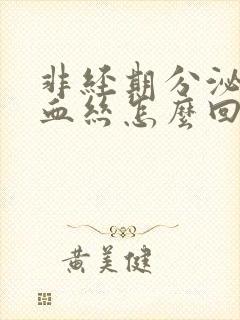 非經期分泌
血絲怎麼回
黃美健